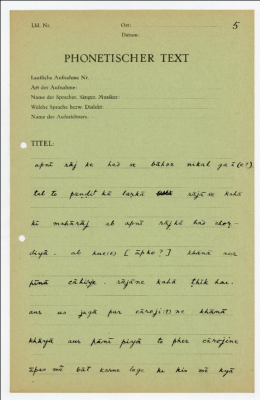 Lfd. Nr.
Ort:
5
Datum:
PHONETISCHER TEXT
Lautliche Aufnahme Nr.
Art der Aufnahme:
Name des Sprechers, Sängers, Musikers:
Welche Sprache bezw. Dialekt:
Name des Aufzeichners:
TITEL:
apnī rāj ke had se bāhar nikal gaī(e?).
tab to paṇḍit kā laṛkā rājā se kahā
ki mahārāj ab apnī rājkā had choṛ-
diyā. ab kuc(e) [āpko?] khānā aur
pīnā cāhiye. rājāne kahā ṭhīk hai.
aur us jagā par cāroji(?) ne khānā
khāyā aur pānī piyā to pher cārojine
āpas mē bāt karne lage ke kis mē kyā